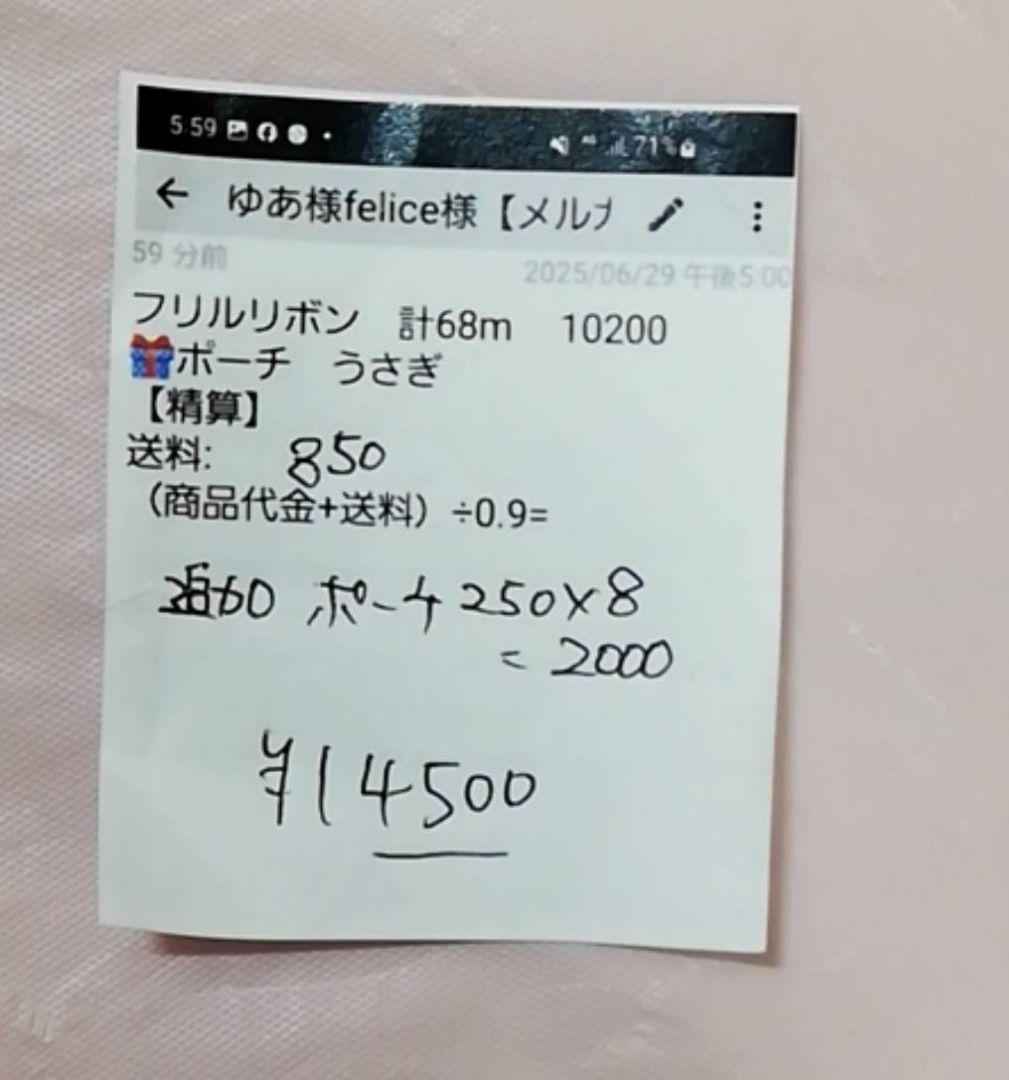 5:59 71%
← ゆあ様felice様【メルカ
59 分前 2025/06/29 午後5:00
フリルリボン 計68m 10200
🎁ポーチ うさぎ
【精算】
送料: 850
（商品代金+送料）÷0.9=
ポーチ 250×8
= 2000
¥14500